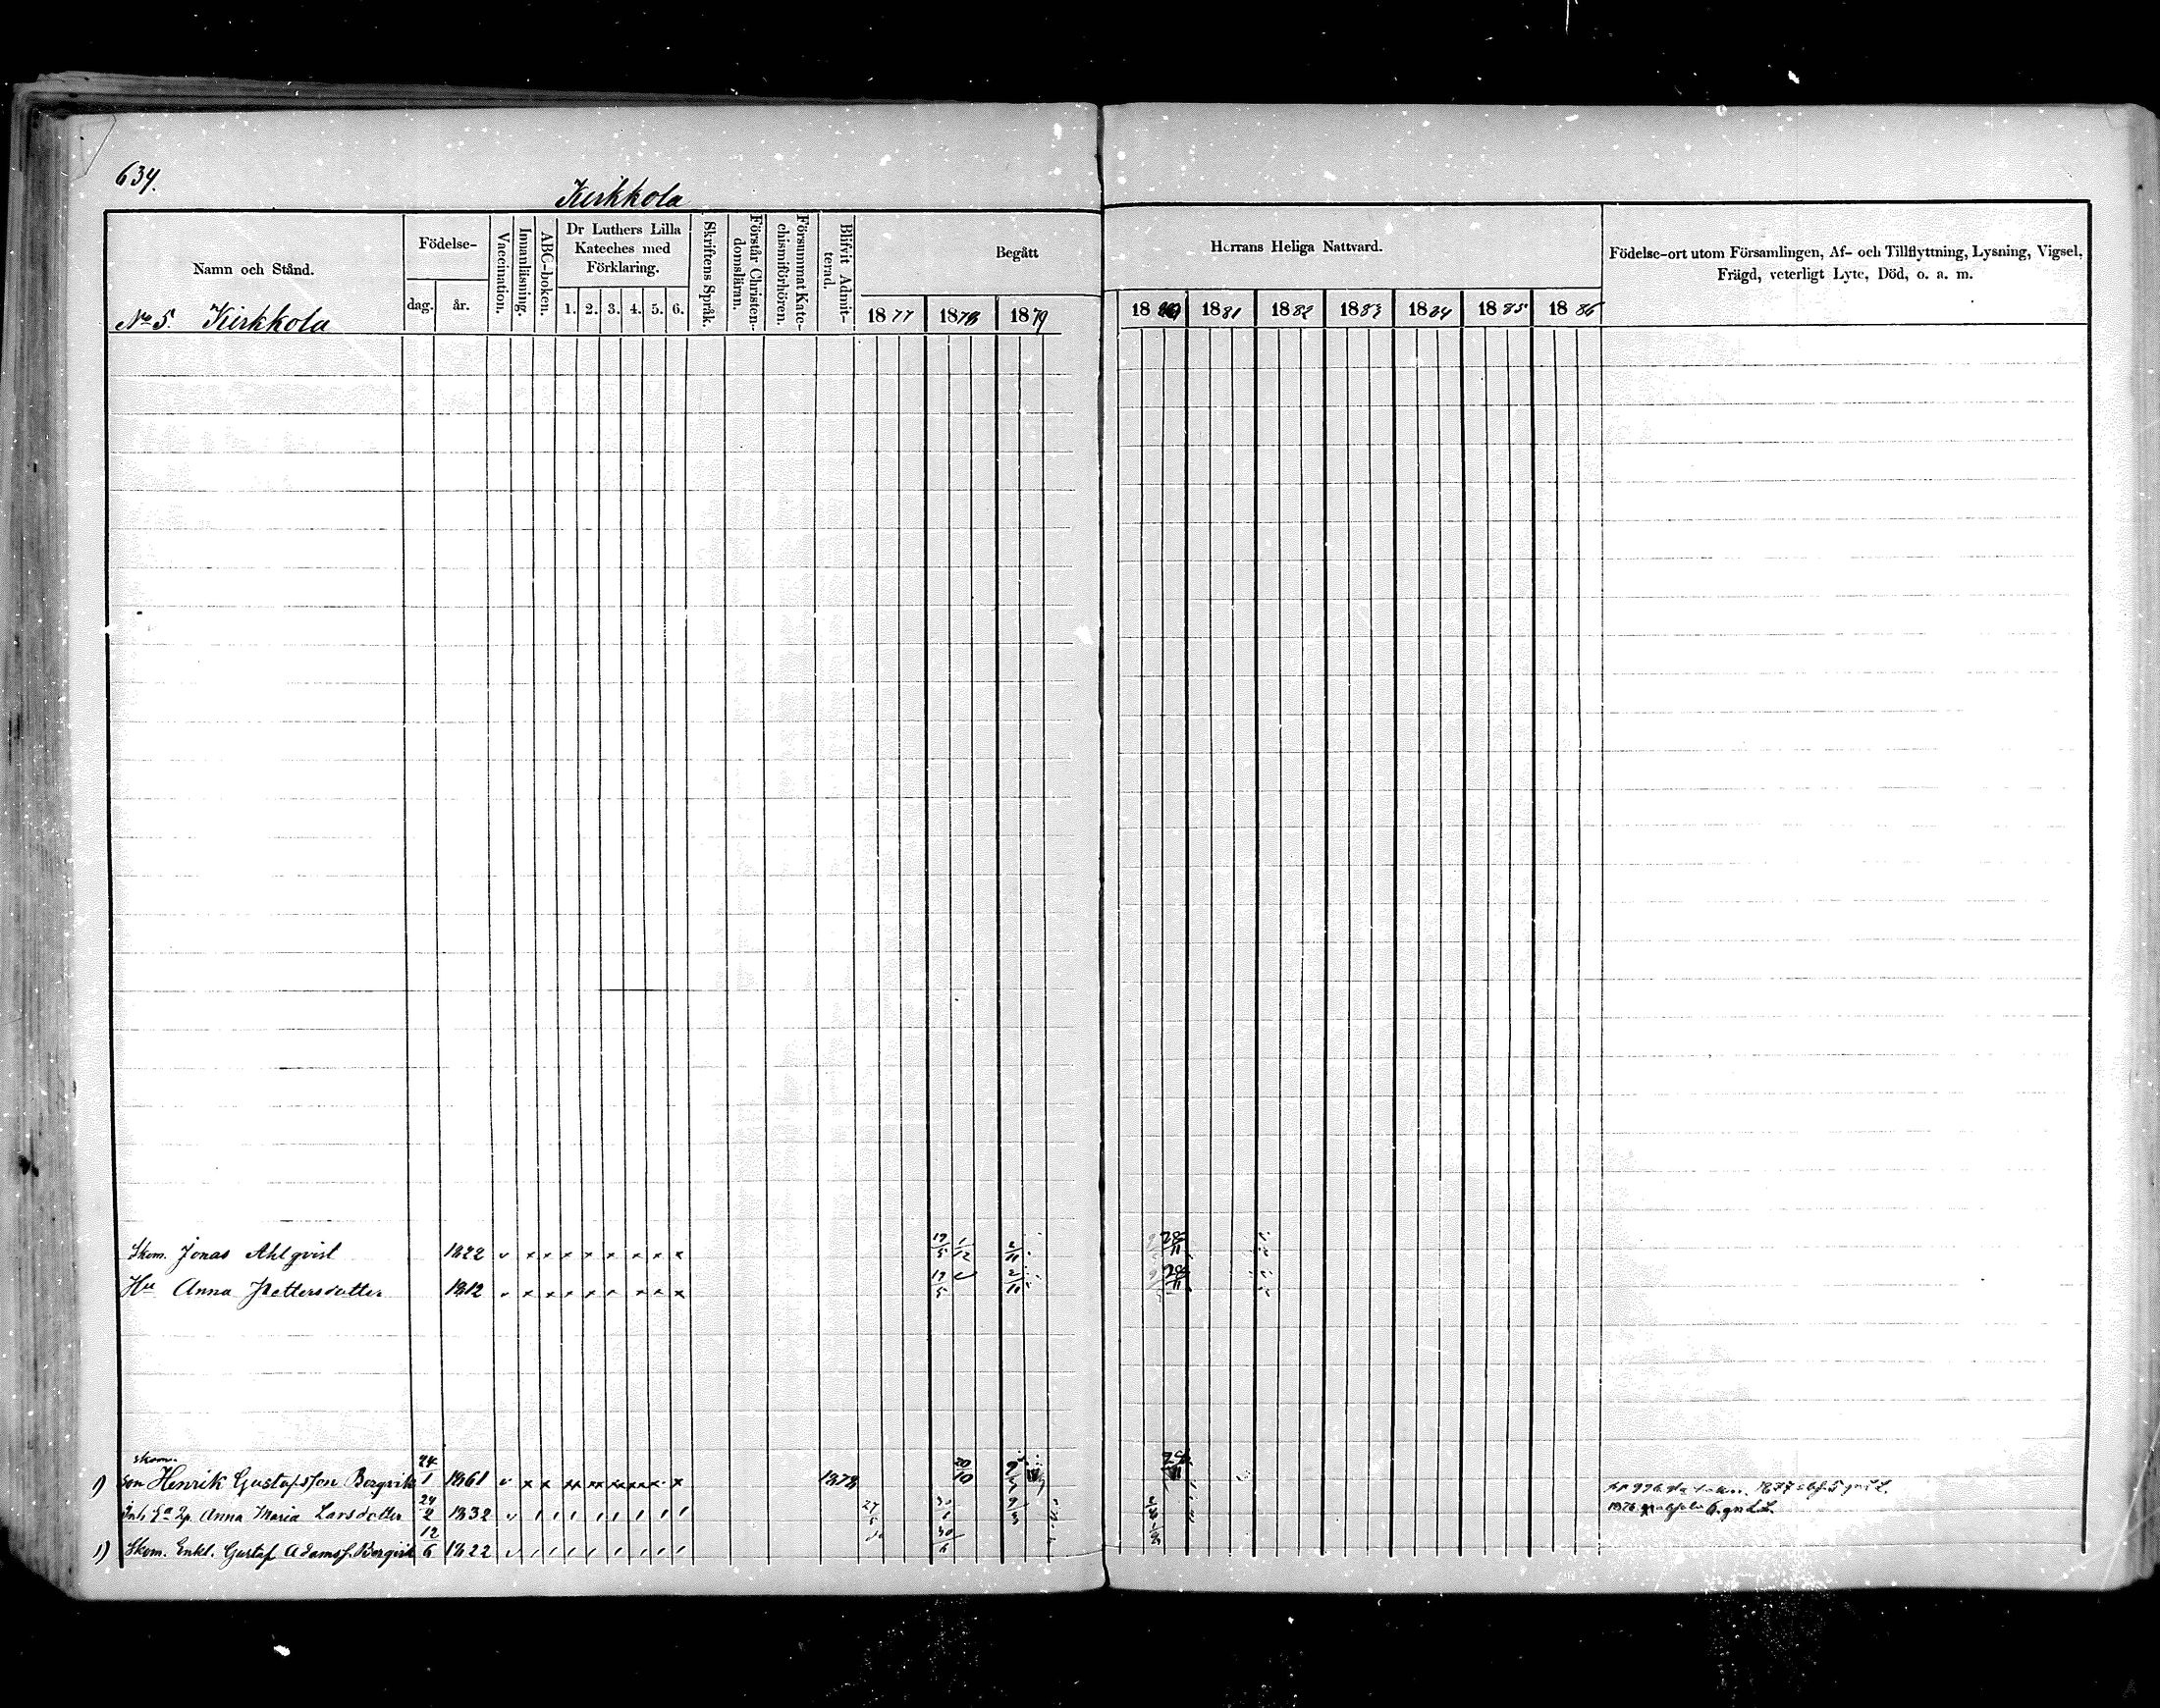 634.
Kirkkola
Namn och Stånd.
Födelse-
dag.
år.
Vaccination.
Innanläsning.
ABC-boken.
Dr Luthers Lilla
Kateches med
Förklaring.
1. 2. 3. 4. 5. 6.
Skriftens Språk.
Förstår Christen-
domsläran.
Försummat Kate-
chismiförhören.
Blifvit Admit-
terad.
Begått
Herrans Heliga Nattvard.
1877 1878 1879
1880 1881 1882 1883 1884 1885 1886
Födelse-ort utom Församlingen, Af- och Tillflyttning, Lysning, Vigsel,
Frägd, veterligt Lyte, Död, o. a. m.
No 5. Kirkkola
Skom. Jonas Ahlqvist 1822 19/5 1/12 2/11 28/11
Hu Anna Pettersdotter 1812 19/5 2/11 28/11
skom.
1) Son Henrik Gustafsson Bergvik 24/1 1861 1878 20/10
Anna Maria Larsdotter 24/2 1832
1) Skom. Enkl. Gustaf Adamss. Bergvik 12/6 1822 30/6